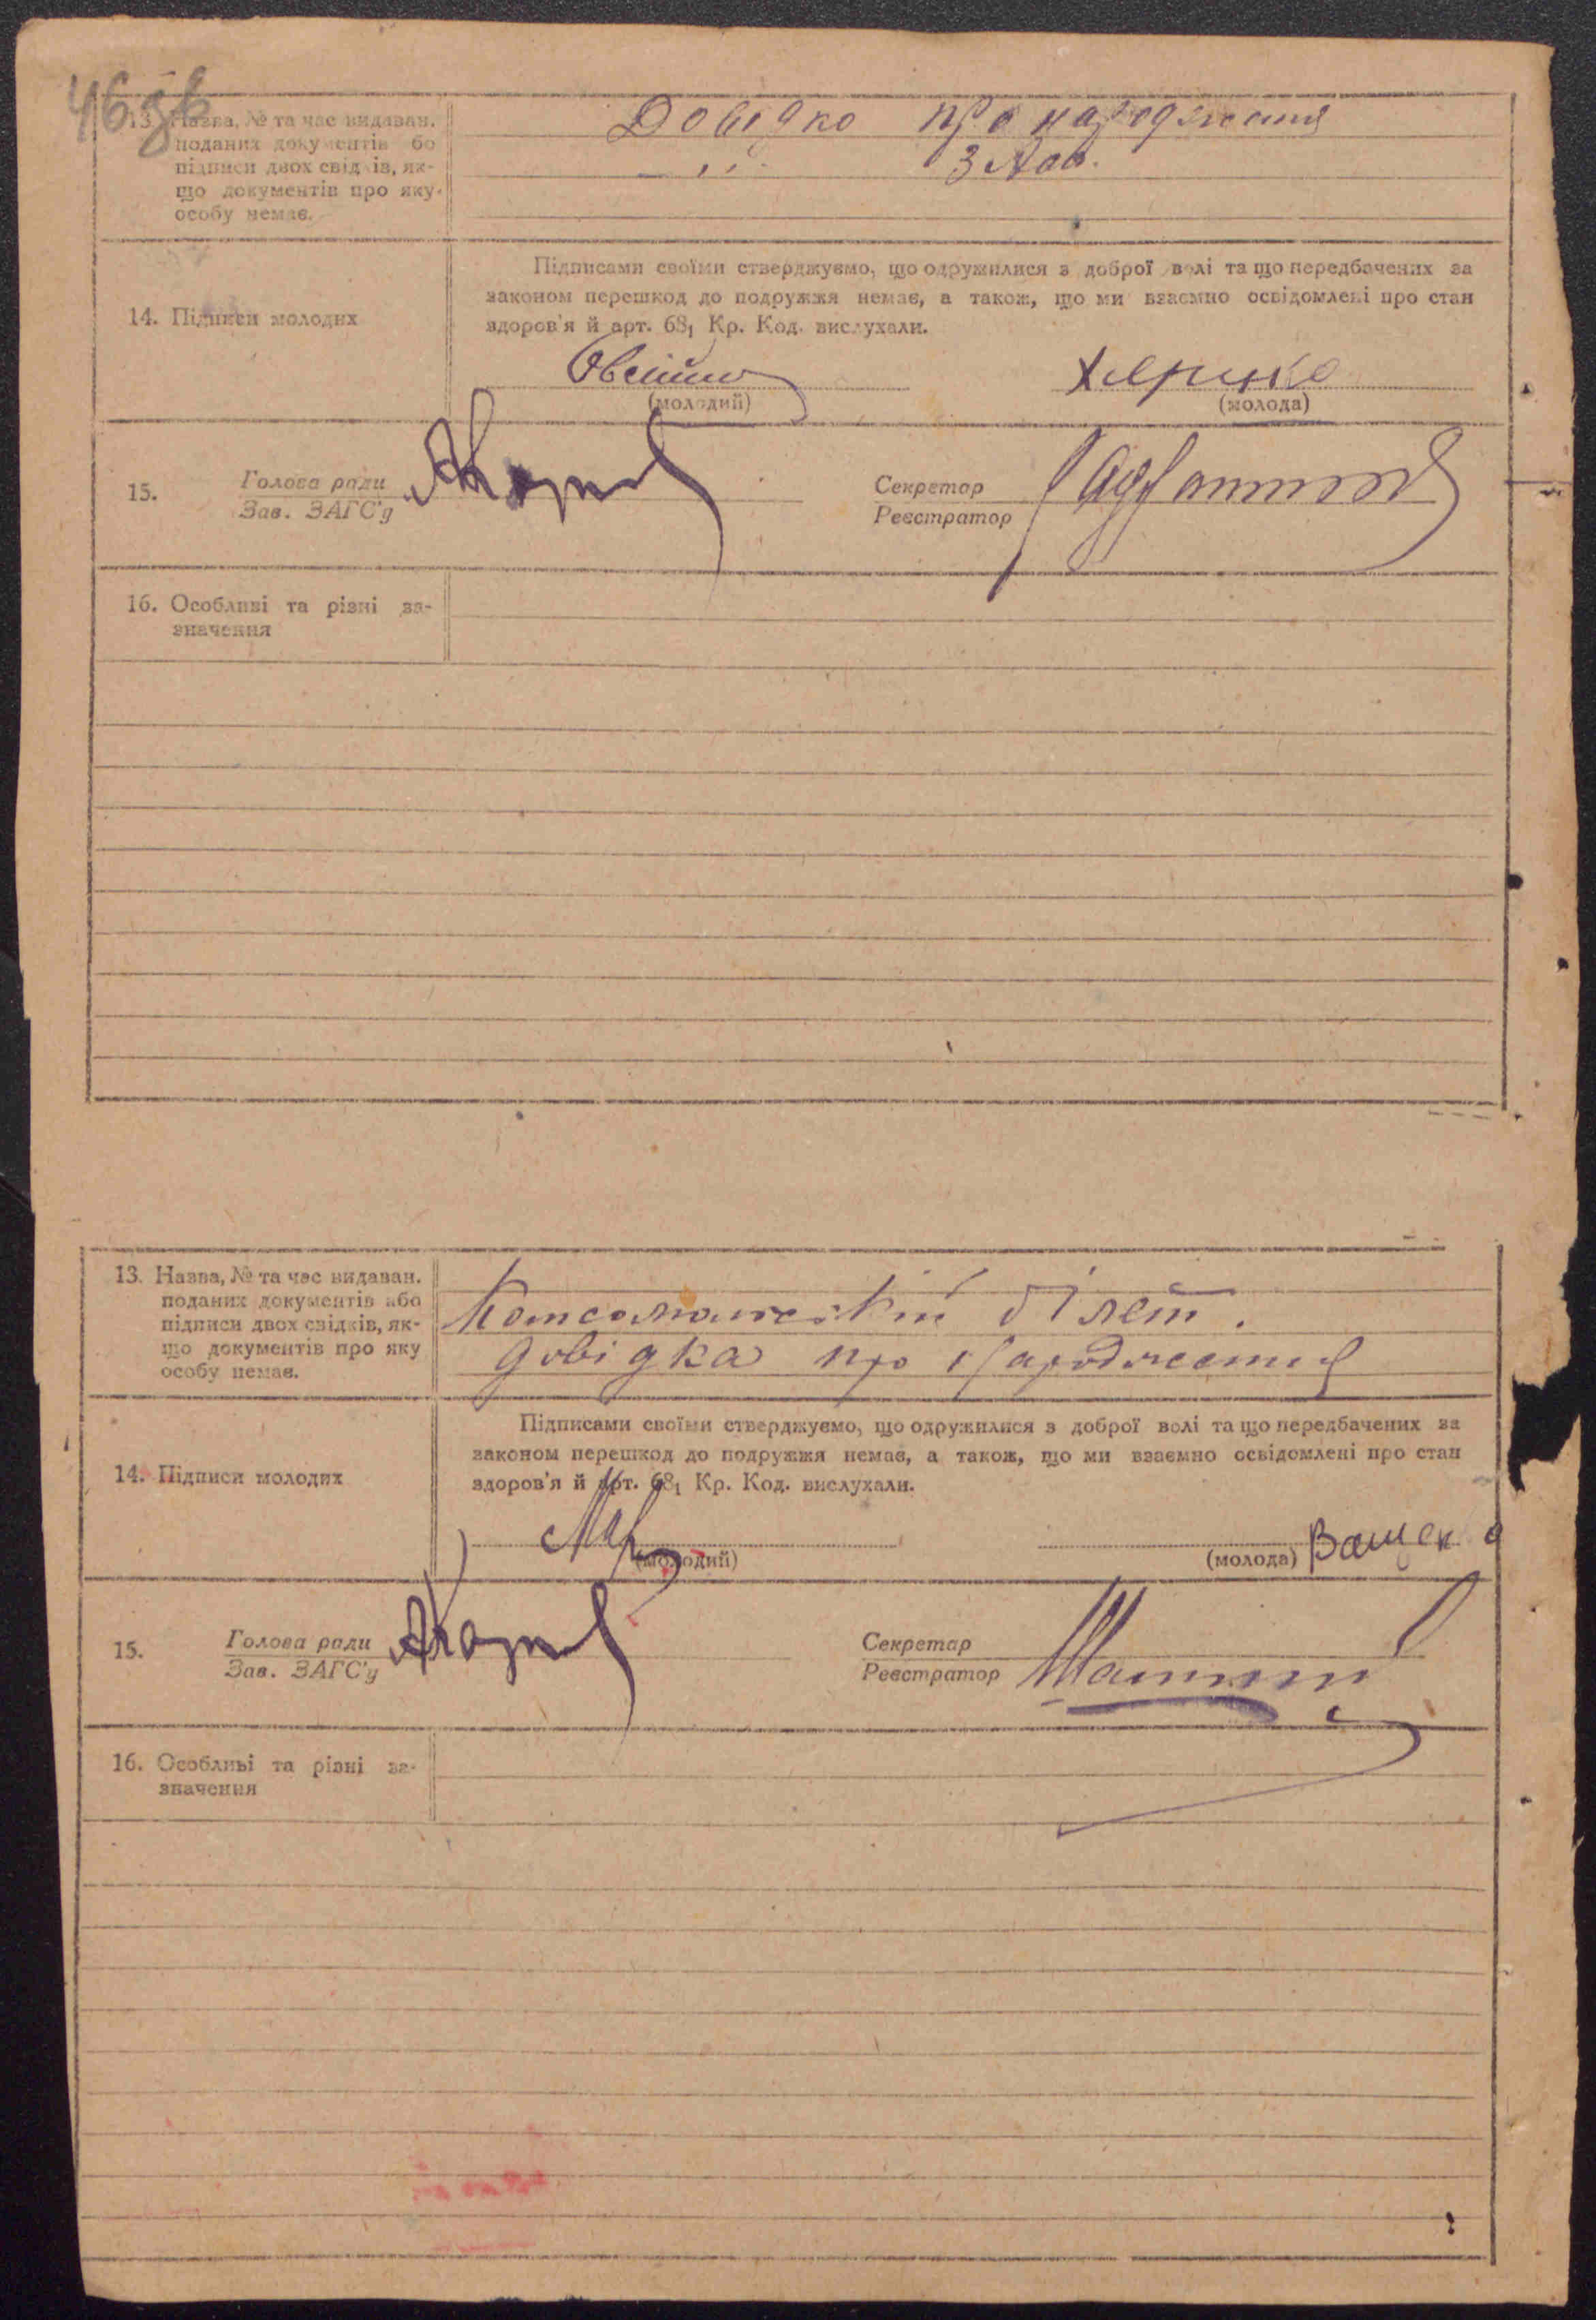 46зв
13. Назва, № та час видаван.
поданих документів або
підписи двох свідків, як-
що документів про яку-
особу немає.
Довідко про народження
3 Лав.
14. Підписи молодих
Підписами своїми стверджуємо, що одружилися з доброї волі та що передбачених за
законом перешкод до подружжя немає, а також, що ми взаємно освідомлені про стан
здоров'я й арт. 68₁ Кр. Код. вислухали.
(молодий)
(молода)
15.
Голова ради
Зав. ЗАГС'у
Секретар
Реєстратор
16. Особливі та різні за-
значення
13. Назва, № та час видаван.
поданих документів або
підписи двох свідків, як-
що документів про яку
особу немає.
Комсомольскій білет.
довідка про народження
14. Підписи молодих
Підписами своїми стверджуємо, що одружилися з доброї волі та що передбачених за
законом перешкод до подружжя немає, а також, що ми взаємно освідомлені про стан
здоров'я й арт. 68₁ Кр. Код. вислухали.
(молодий)
(молода) Ващенко
15.
Голова ради
Зав. ЗАГС'у
Секретар
Реєстратор
16. Особливі та різні за-
значення